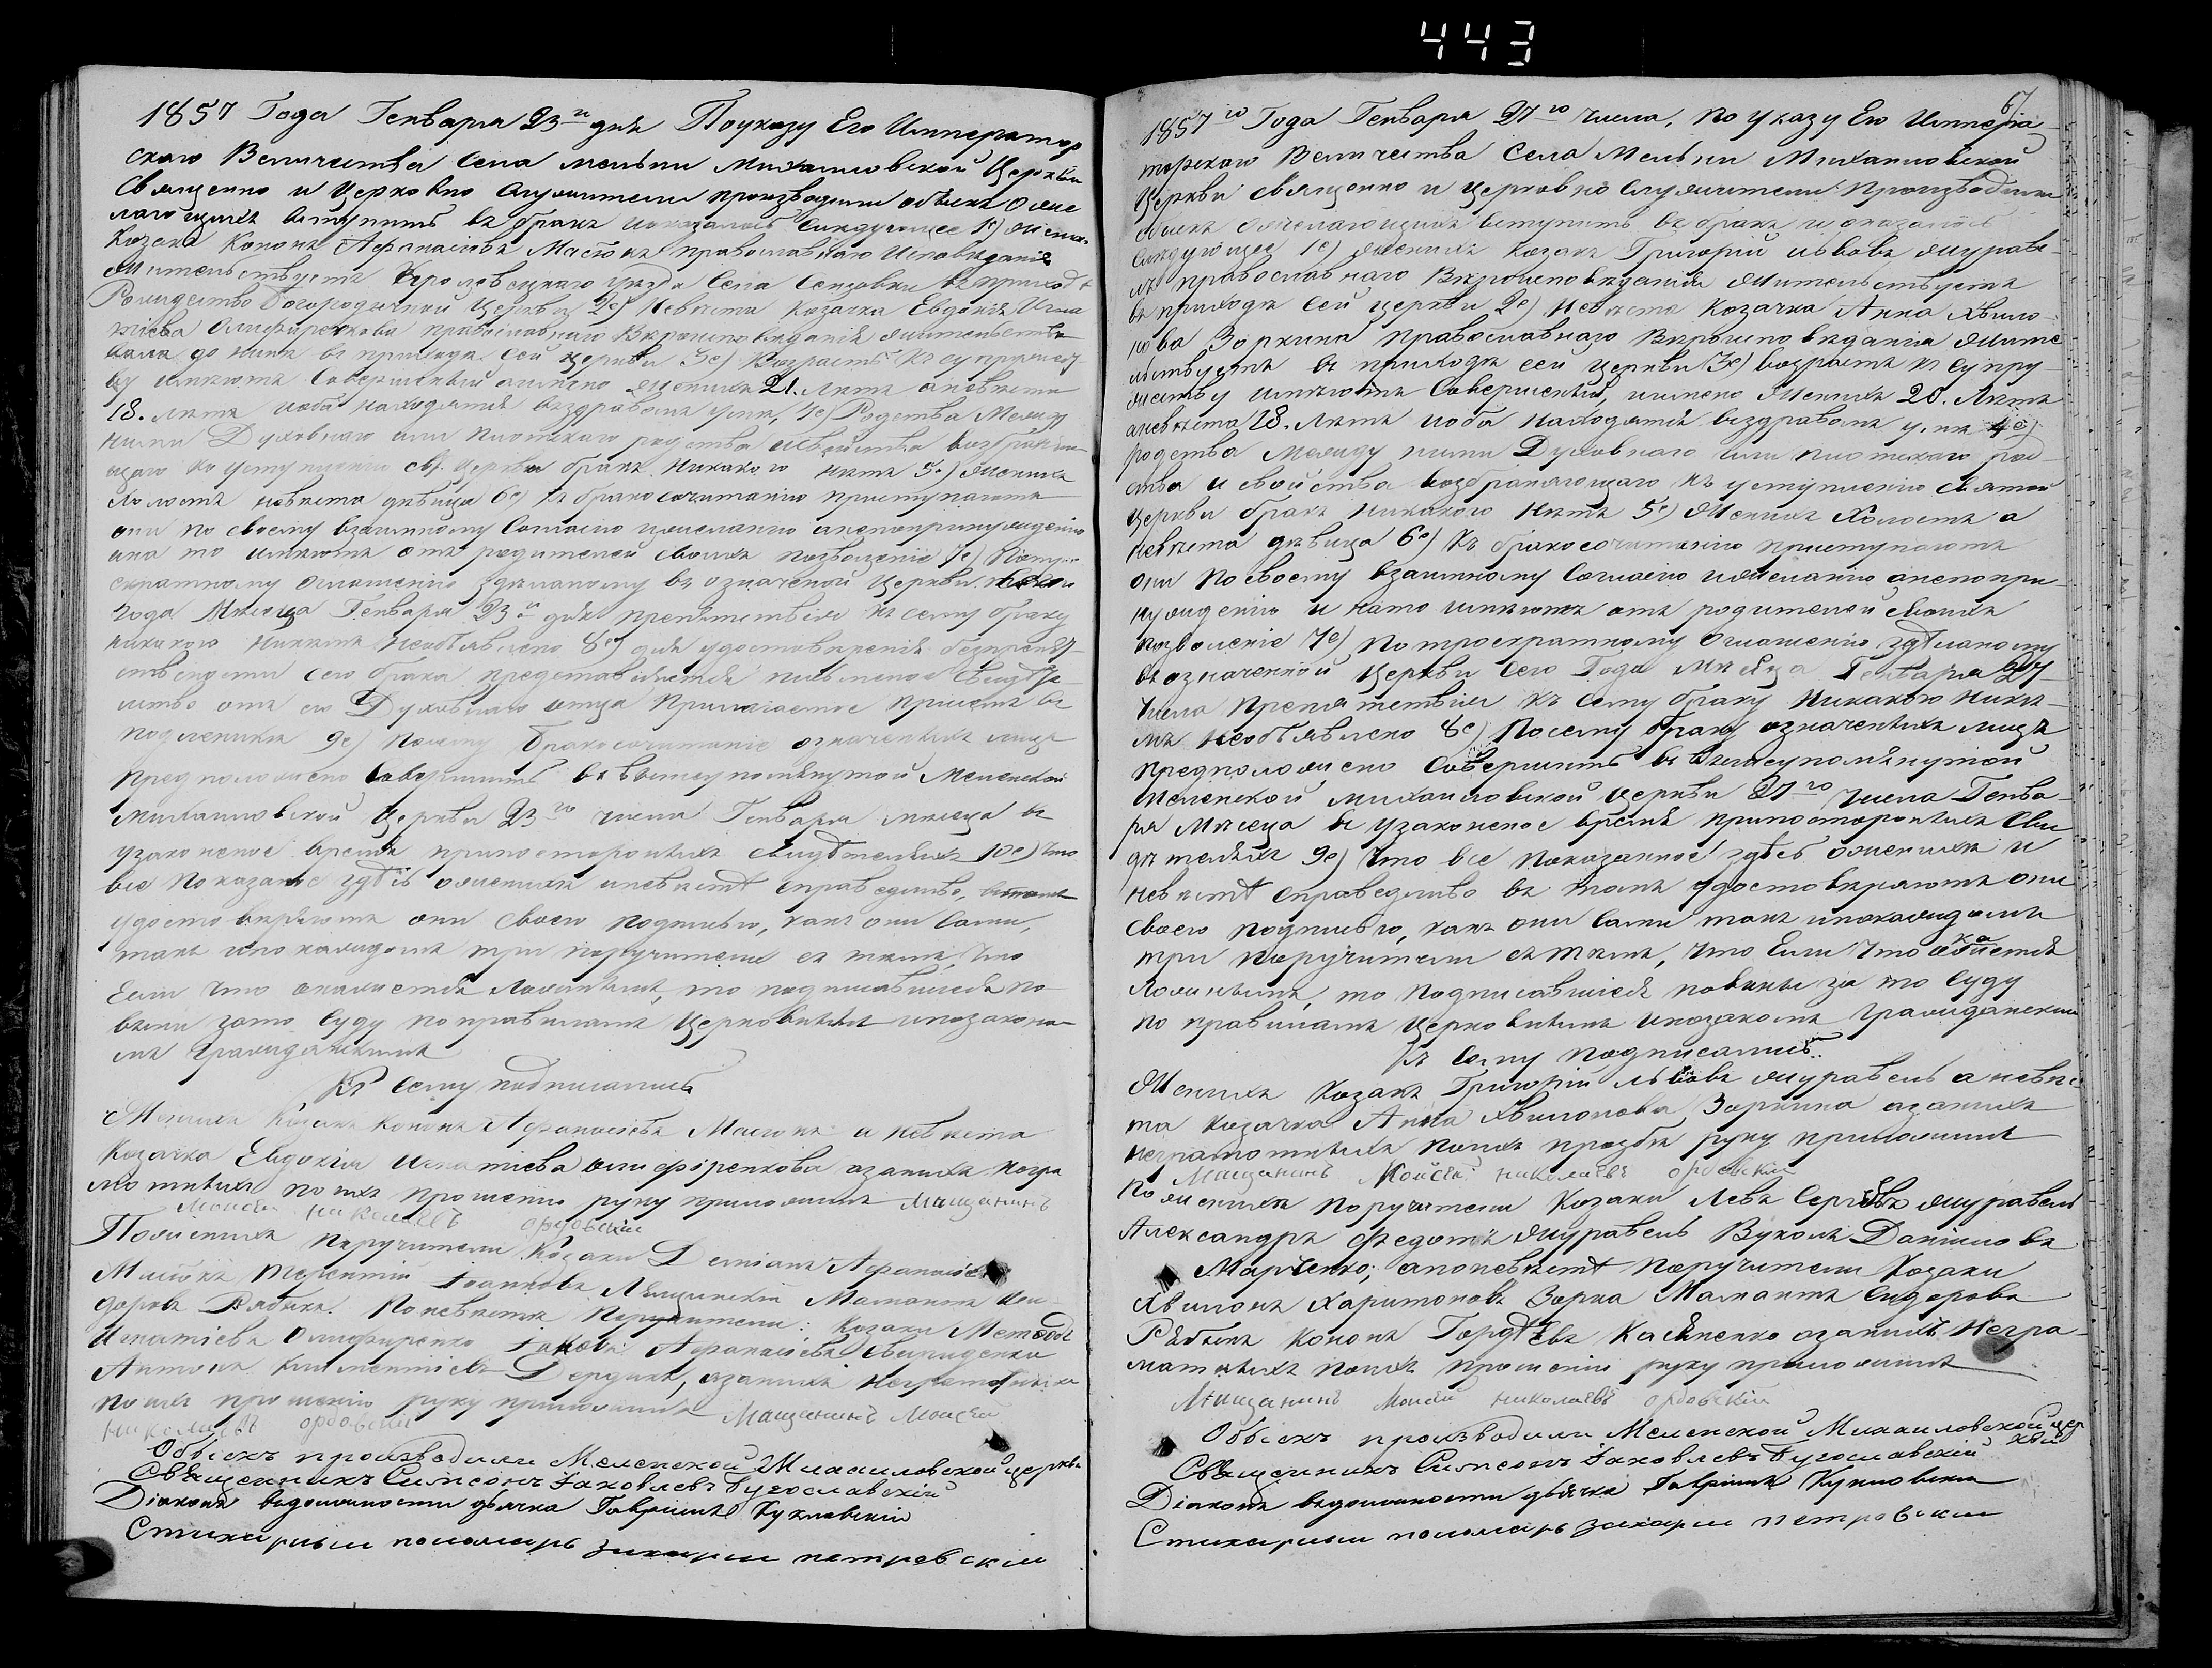 443
1857 Года Генваря 23го дня Поуказу Его Император
скаго Величества Села мельни Михаиловской Церкви
Священно и Церковно служители производили обыскъ о же
лающихъ вступить въ бракъ и оказалось следующее 1е) Жених
Козакъ Кононъ Афанасіевъ Масюкъ православнаго Исповеданія
Жительствуетъ Кролевецкаго уезда Села в приход
Рождество Богородичной Церкви 2е) Невеста Козачка Евдокія Игна
тіева Олифіренкова православнаго Вероисповеданія жительство
вала до ныне въ приходе Сей Церкви 3е) Возрастъ къ супружест
ву имеютъ Совершенный именно женихъ 21. летъ а невеста
18. летъ иоба находятся въздравомъ уме, 4е) Родства Между
ними Духовнаго или плотскаго родства исвойства возбраняю
щаго по уступленію св. Церкви бракъ никакого нетъ 5е) Женихъ
Холостъ невеста девица 6е) Къ бракосочитанію приступаютъ
они по своему взаимному Согласію ижеланію анепопринужденію
ина то имеютъ отъ родителей своихъ позволеніе 7е) По трое
скратному оглашенію зделаному въ означеной Церкви
Года Месяца Генваря 23го дня препятствія къ сему браку
никакого никемъ необъявлено 8е) для удостоверенія безпрепят
ственности сего брака представляется письменое свидете
льство отъ его Духовнаго отца Прилагаемое при семъ въ
подленике 9е) Посему бракосочитаніе означенныхъ лицъ
предположено Совершить въ вышеупомянутой Меленской
Михаиловской Церкви 23го числа Генваря месяца въ
узаконеное время припостороннихъ свидетеляхъ 10е) Что
все показаное здесь оженихе иневесте справедливо, втомъ
удостоверяютъ они своею подписью, какъ они сами,
такъ ипокаждомъ три поручители съ темъ, Что
Если Что окажется ложнымъ, то подписавшіеся по
винни зато Суду поправиламъ Церковнымъ ипозакона
мъ Гражданскимъ
Къ сему подписались
Женихъ Козакъ Кононъ Афанасіевъ Масюкъ а невеста
Козачка Евдокія Игнатіева олифіренкова азанихъ негра
мотныхъ поихъ прошенію руку приложилъ Мещанинъ
Моисей николаевъ орловскій
Поженихе поручители Козаки Деміанъ Афанасіевъ
Масюкъ Терентій Іоанновъ Лещинскій Мамантъ Сы
доровъ Рябыка. Поневесте Поручители: Козаки Методій
Игнатіевъ Олифиренко Іаковъ Афанасіевъ
Антонъ Климентіевъ Дердикъ, азанихъ неграмотныхъ
поихъ прошенію руку приложилъ Мещанинъ Моисей
николаевъ орловскій
Обыскъ производили Меленской Михаиловской церкви
Священникъ Симеонъ Іаковлевъ Бугославскій
Діаконъ вдолжности дьячка Гавріилъ Букловскій
Стихарный пономарь захарій петровскій
67
1857го Года Генваря 27го числа, по указу Его Импера
торскаго Величества Села Мельни Михаиловской
Церкви Священно и церковно служители Производили
обыскъ ожелающихъ вступить въ бракъ и оказалось
следующее 1е) женихъ козакъ Григорій львовъ журавел
ль православнаго Вероисповеданія жительствуетъ
въ приходе сей церкви 2е) невеста Козачка Анна Явило
нова Зоркина православнаго Вероисповеданія жите
льствуетъ въ приходе сей Церкви 3е) возрастъ к Супру
жеству имеютъ Совершенный, именно женихъ 20. летъ
аневеста 18. летъ иоба находятся въздравомъ уме 4е)
родства между ними Духовнаго или плотскаго род
ства и свойства возбраняющаго къ уступленію святой
церкви бракъ никакого нетъ 5е) Женихъ Холостъ а
невеста девица 6е) Къ бракосочитанію приступаютъ
они по своему взаимному Согласію ижеланію анепопри
нужденію и нато имеютъ отъ родителей своихъ
позволеніе 7е) По троекратному оглашенію зделаному
въ означенной Церкви сего Года месяца Генваря 27
Числа препятствія къ сему браку никакого нике
мъ необъявлено 8е) Посему бракъ означенныхъ лицъ
предположено Совершить въ вышеупомянутой
Меленской михаиловской церкви 27го числа Генва
ря Месеца въ узаконеное время припостороннихъ Сви
детеляхъ 9е) Что все показанное здесь оженихе и
невесте справедливо въ томъ удостоверяютъ они
своею подписью, какъ они сами такъ ипокаждомъ
три поручители съ темъ, Что Если Что окажется
ложнымъ, то подписавшіеся повинны за то суду
по правиламъ Церковнымъ ипозакомъ Гражданским
Къ сему подписались
Женихъ козакъ Григорій львовъ журавель а невес
та козачка Анна Явилонова Зоркина азанихъ
неграмотныхъ поихъ прозбе руку приложилъ
Мещанинъ Моисей николаевъ орловскій
По женихе поручители Козаки Левъ Сергеевъ журавель
Александръ федотовъ журавель Вуколъ Даниловъ
Марченко; апоневесте поручители Козаки
Явилонъ Харитоновъ Зорка Мамантъ Сидоровъ
Рябыка кононъ Гордеевъ Касяненко азанихъ негра
мотныхъ поихъ прошенію руку приложилъ
Мещанинъ Моисей николаевъ орловскій
Обыскъ производили Меленской Михаиловской цер
кви
Священникъ Симеонъ Іаковлевъ Бугославскій
Діаконъ вдолжности дьячка Гавріилъ Букловскій
Стихарный пономарь захарій петровскій